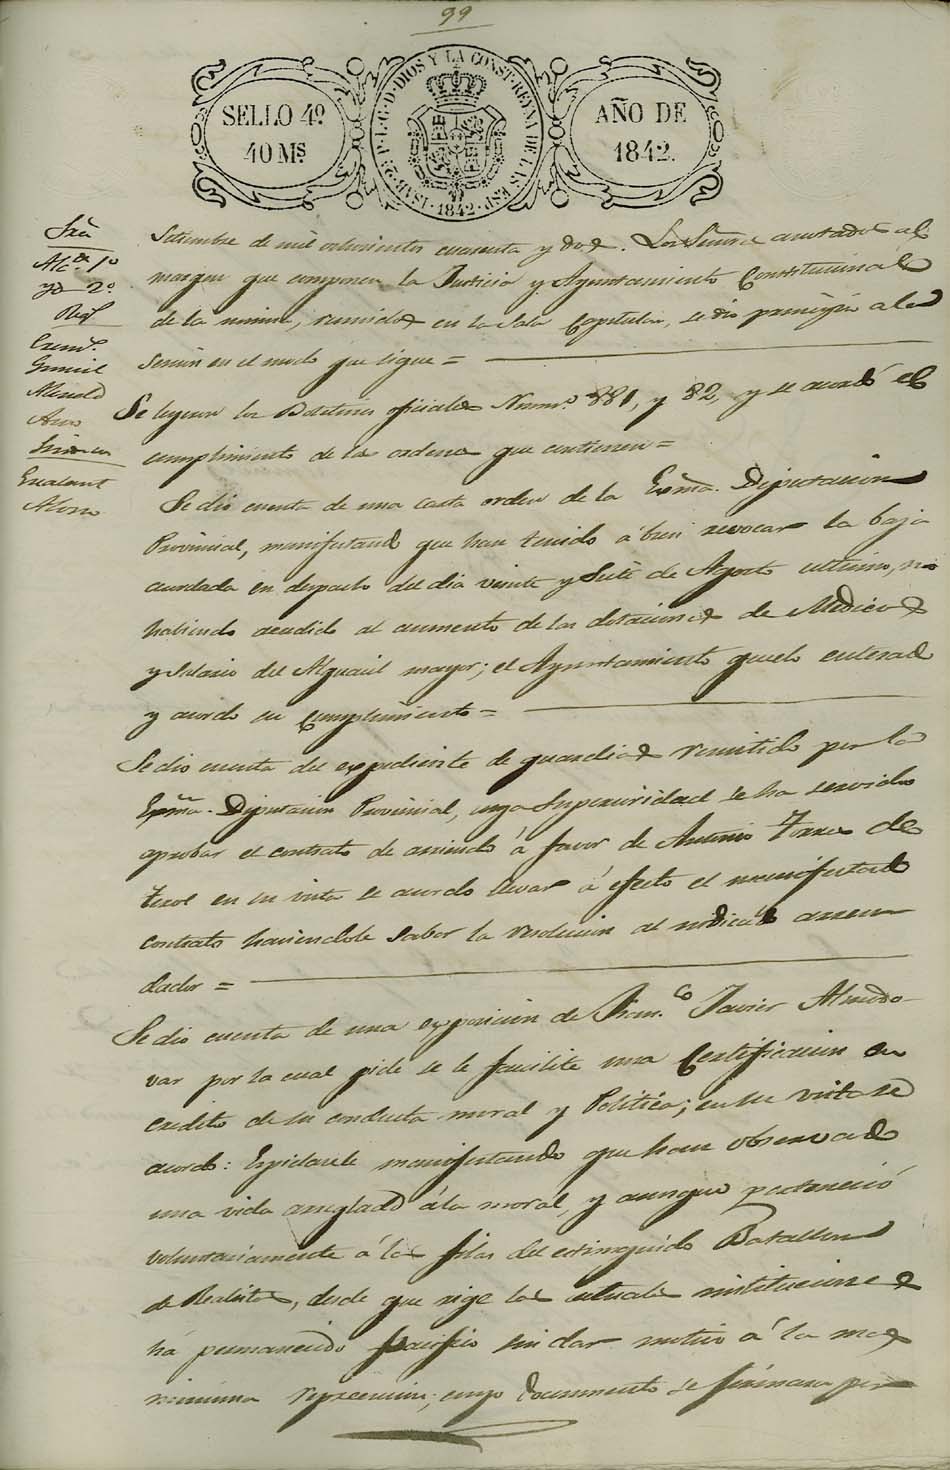 99
SELLO 4º
40 Ms
ISAB. 2ª P. L. G. D. DIOS Y LA CONST. REYNA DE LAS ESP. 1842
AÑO DE
1842.
Alcᵉ 1º
yd 2º
Regˢ
Escalant
Setiembre de mil ochocientos cuarenta y dos. Los Señores anotados al
margen que componen la Justicia y Ayuntamiento Constitucional
de la misma, reunidos en la Sala Capitular, se dio principio a la
Sesion en el modo que sigue =
Se leyeron los Boletines oficiales Numˢ 881, y 82, y se acordó el
cumplimiento de las ordenes que contienen =
Se dio cuenta de una carta orden de la Exma. Diputacion
Provincial, manifestando que han tenido á bien revocar la baja
acordada en despacho del dia veinte y siete de Agosto ultimo, no
habiendo acudido al aumento de las dotaciones de Medicos
y Salario del Alguacil mayor; el Ayuntamiento quedó enterado
y acordo su cumplimiento =
Se dio cuenta del expediente de guardias remitido por la
Exma. Diputacion Provincial, cuya Superioridad se ha servido
aprobar el contrato de arriendo á favor de Antonio Torres de
Terol en su vista se acordo llevar á efecto el manifestado
contrato haciendole saber la resolucion al indicado arren
dador =
Se dio cuenta de una exposicion de Franᶜᵒ Javier Almodo
var por la cual pide se le facilite una Certificacion en
credito de su conducta moral y Politica; en su vista se
acordo: Espidasele manifestando que han observado
una vida arreglada á la moral, y aunque perteneció
voluntariamente á las filas del estinguido Batallon
de Realistas, desde que rige las actuales instituciones
há permanecido pacifico sin dar motivo á la mas
minima reprencion; cuyo documento se firmara por